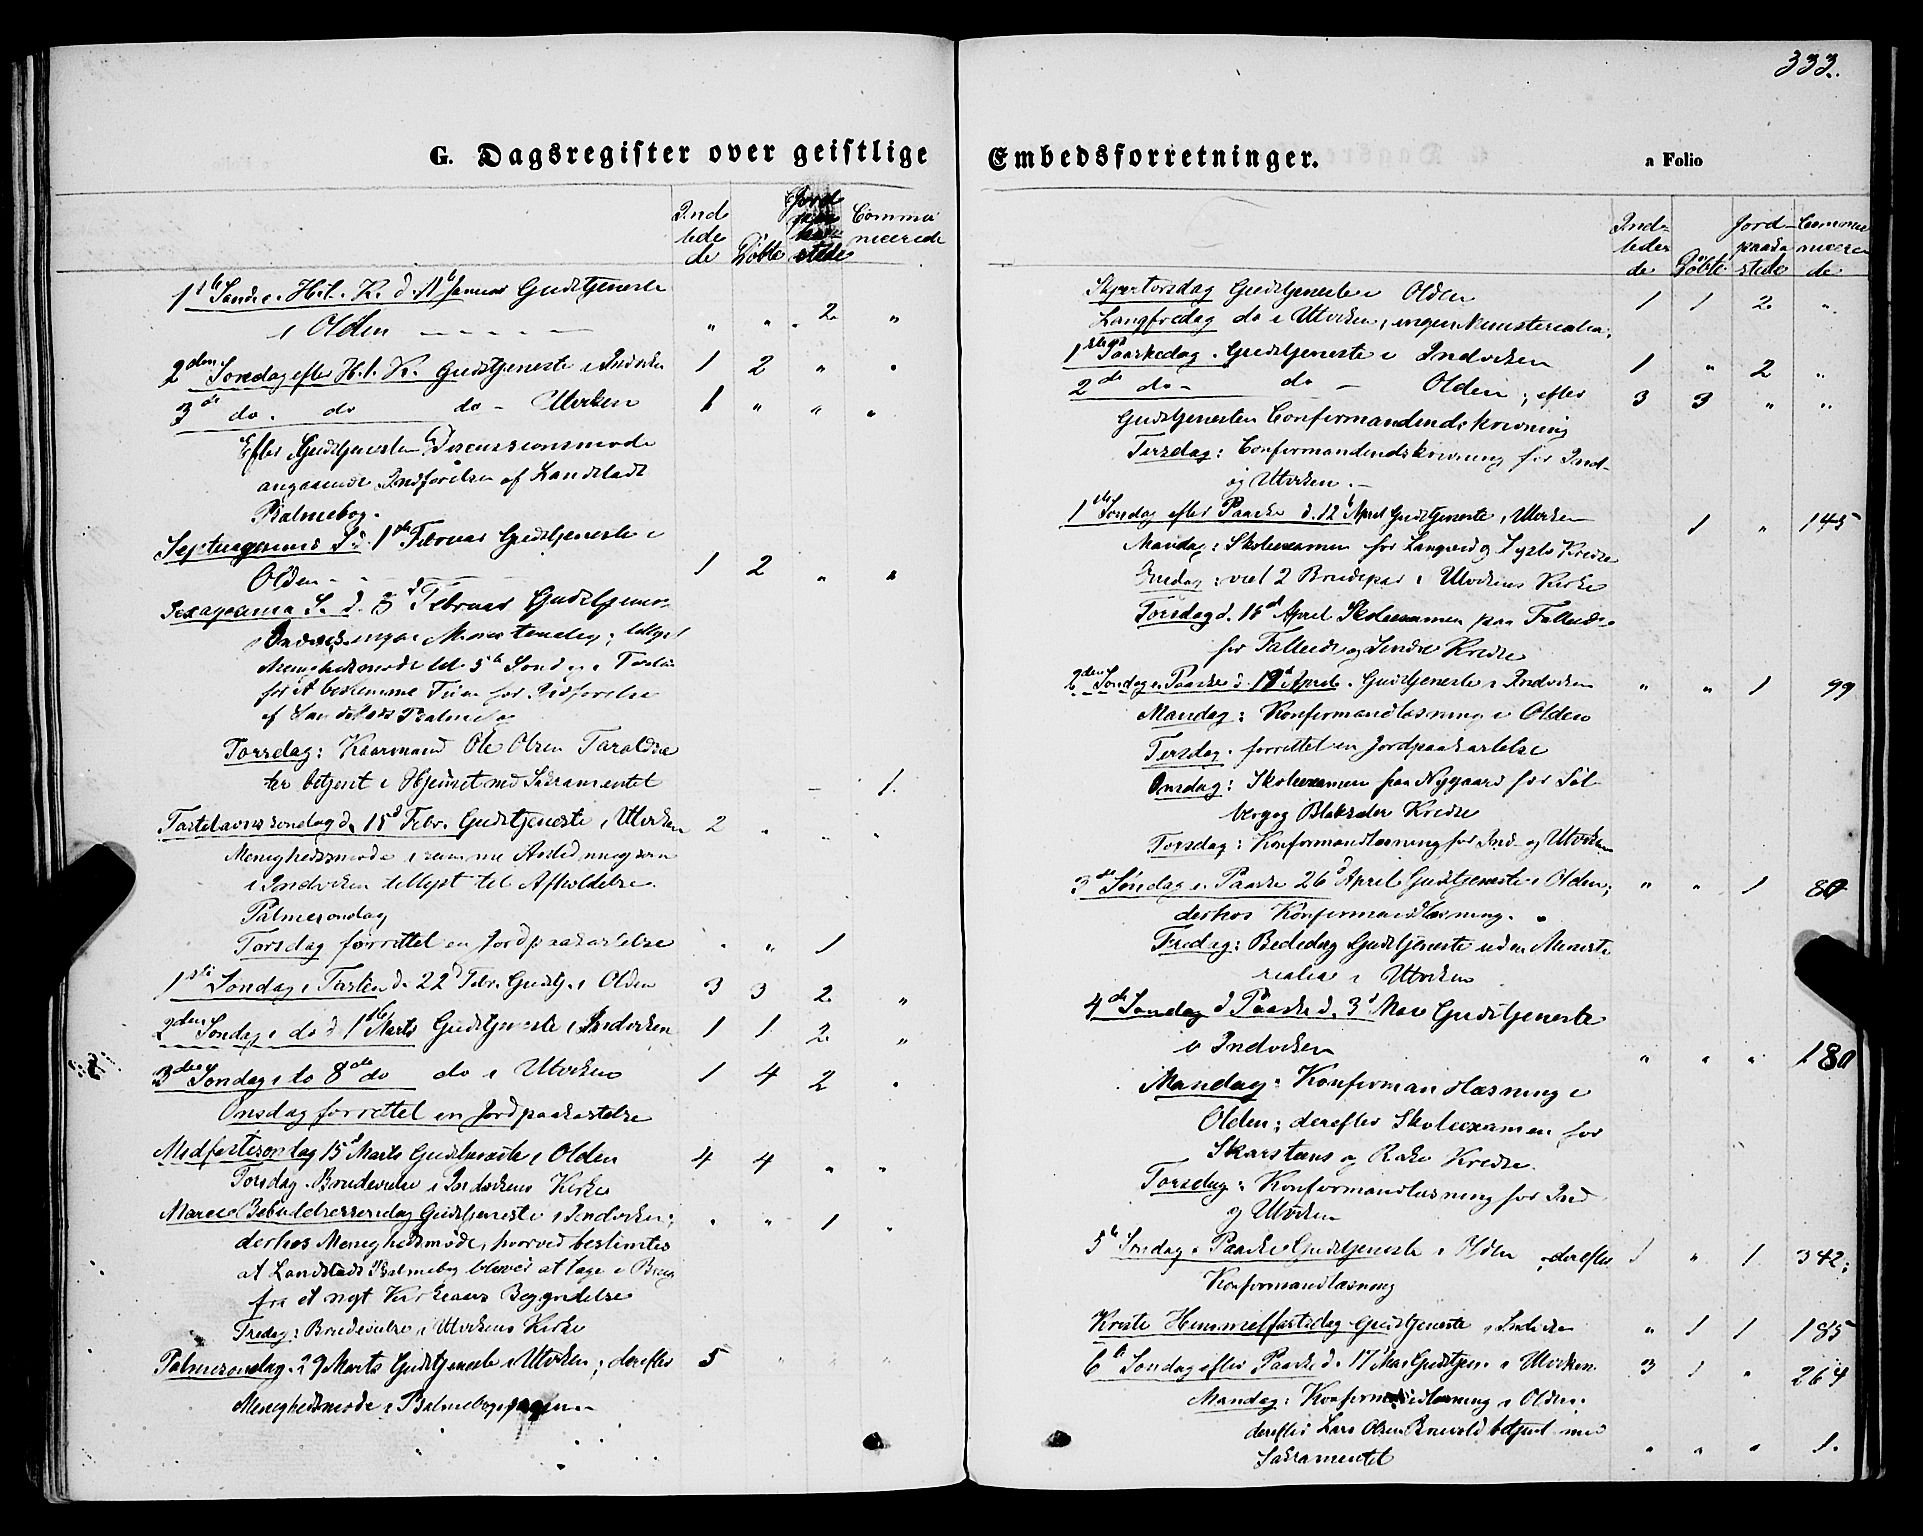 333.
G. Dagsregister over geistlige
Ind
lede
de
Döbte
Jord
paa
ka
stede
Commu
nicerede
1ste Sønd. e. H.t. K. d. 11te Januar Gudstjeneste
i Olden - - - - - " " 2 "
2den Søndag efter H.t. K. Gudstjeneste i Indviken 1 2 " "
3de do. do do - Utviken 1 " " "
Efter Gudstjenesten Discussionsmøde
angaaende Indførelsen af Landstads
Psalmebog.
Septuagesima S. 1ste Februar Gudstjeneste i
Olden - - - 1 2 " "
Sexagesima S. d. 8d Februar Gudstjeneste
Menighedsmøde til 5te Søndag i Faste
for at bestemme Tiden for Indførelse
af Landstads Psalmebog
Torsdag: Kaarmand Ole Olsen
betjent i Hjemmet med Sakramentet - 1.
Fastelavnssøndag d. 15d Febr. Gudstjeneste i Utviken 2 " " "
Menighedsmøde i samme Anledning som
i Indviken tillyst til Afholdelse
Palmesøndag
Torsdag forrettet en Jordpaakastelse " " 1
1ste Søndag i Fasten d. 22d Febr. Gudstj. i Olden 3 3 2 "
2den Søndag i do d 1ste Marts Gudstjeneste i Indviken 1 1 2 "
3die Søndag i do 8de do do i Utviken 1 4 2 "
Onsdag forrettet en Jordpaakastelse
Midfastesøndag 15d Marts Gudstjeneste i Olden 4 4 " "
Torsdag Brudevielse i Indvikens Kirke
Mariæ Bebudelsessøndag Gudstjeneste i Indviken; " " 1 "
derhos Menighedsmøde, hvorved bestemtes
at Landstads Psalmebog blived at tage i Brug
fra et nyt Kirkeaars Begyndelse
Fredag: Brudevielse i Utvikens Kirke
Palmesøndag 29 Marts Gudstjeneste i Utviken; derefter 5 " " "
Menighedsmøde i Psalmebogssagen
Embedsforretninger.
a Folio
Ind-
leder
de
Döbte
Jord-
paaka
stede
Commu
niceren
de
Skjærtorsdag Gudstjeneste i Olden 1 1 2 "
Langfredag do i Utviken, ingen Ministerialia.
1ste Paaskedag. Gudstjeneste i Indviken 1 " 2 "
2de do - do - Olden; efter 3 3 " "
Gudstjenesten Confirmandindskrivning
Tirsdag: Confirmandindskrivning for Ind-
og Utviken. -
1ste Søndag efter Paaske d. 12te April Gudstjeneste i Utviken 1 " 145
Mandag: Skoleexamen for og Kredse
Onsdag: viet 2 Brudepar i Utvikens Kirke
Torsdag d. 16d April Skoleexamen paa
for og Kredse
2den Søndag e. Paaske d. 19d April. Gudstjeneste i Indviken " " 1 99
Mandag: Konfirmandlæsning i Olden
Tirsdag. forrettet en Jordpaakastelse
Onsdag: Skoleexamen paa Nygaard for
og Kredse
Torsdag: Konfirmandlæsning for Ind- og Utviken
3de Søndag e. Paaske 26d April Gudstjeneste i Olden; " " 1 80
derhos Konfirmandlæsning.
Fredag: Bededag Gudstjeneste uden Ministe
rialia i Utviken
4de Søndag e Paaske d. 3d Mai Gudstjeneste
i Indviken " " " 180
Mandag: Konfirmandlæsning i
Olden; derefter Skoleexamen for
Skarstens og Kredse.
Torsdag: Konfirmandlæsning for Ind
og Utviken
5te Søndag e Paaske Gudstjeneste i Olden derefter 1 " 1 342;
Konfirmandlæsning
Kristi Himmelfartsdag Gudstjeneste i Indviken " 1 1 185
6te Søndag efter Paaske d. 17d Mai Gudstjen. i Utviken 3 1 " 264
Mandag: Konfirmandlæsning i Olden.
derefter Lars Olsen betjent med
Sakramentet " " " 1.